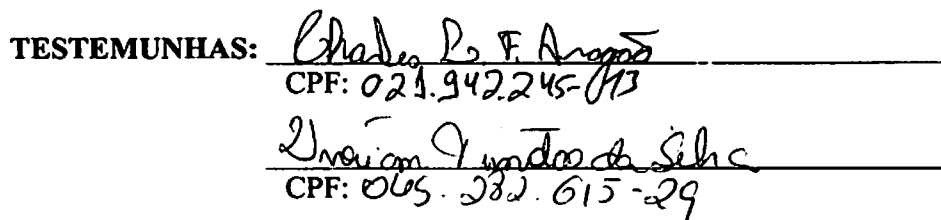 TESTEMUNHAS: Charles R. F. Aragão
CPF: 021.942.245-013
da Silva
CPF: 045.282.615-29